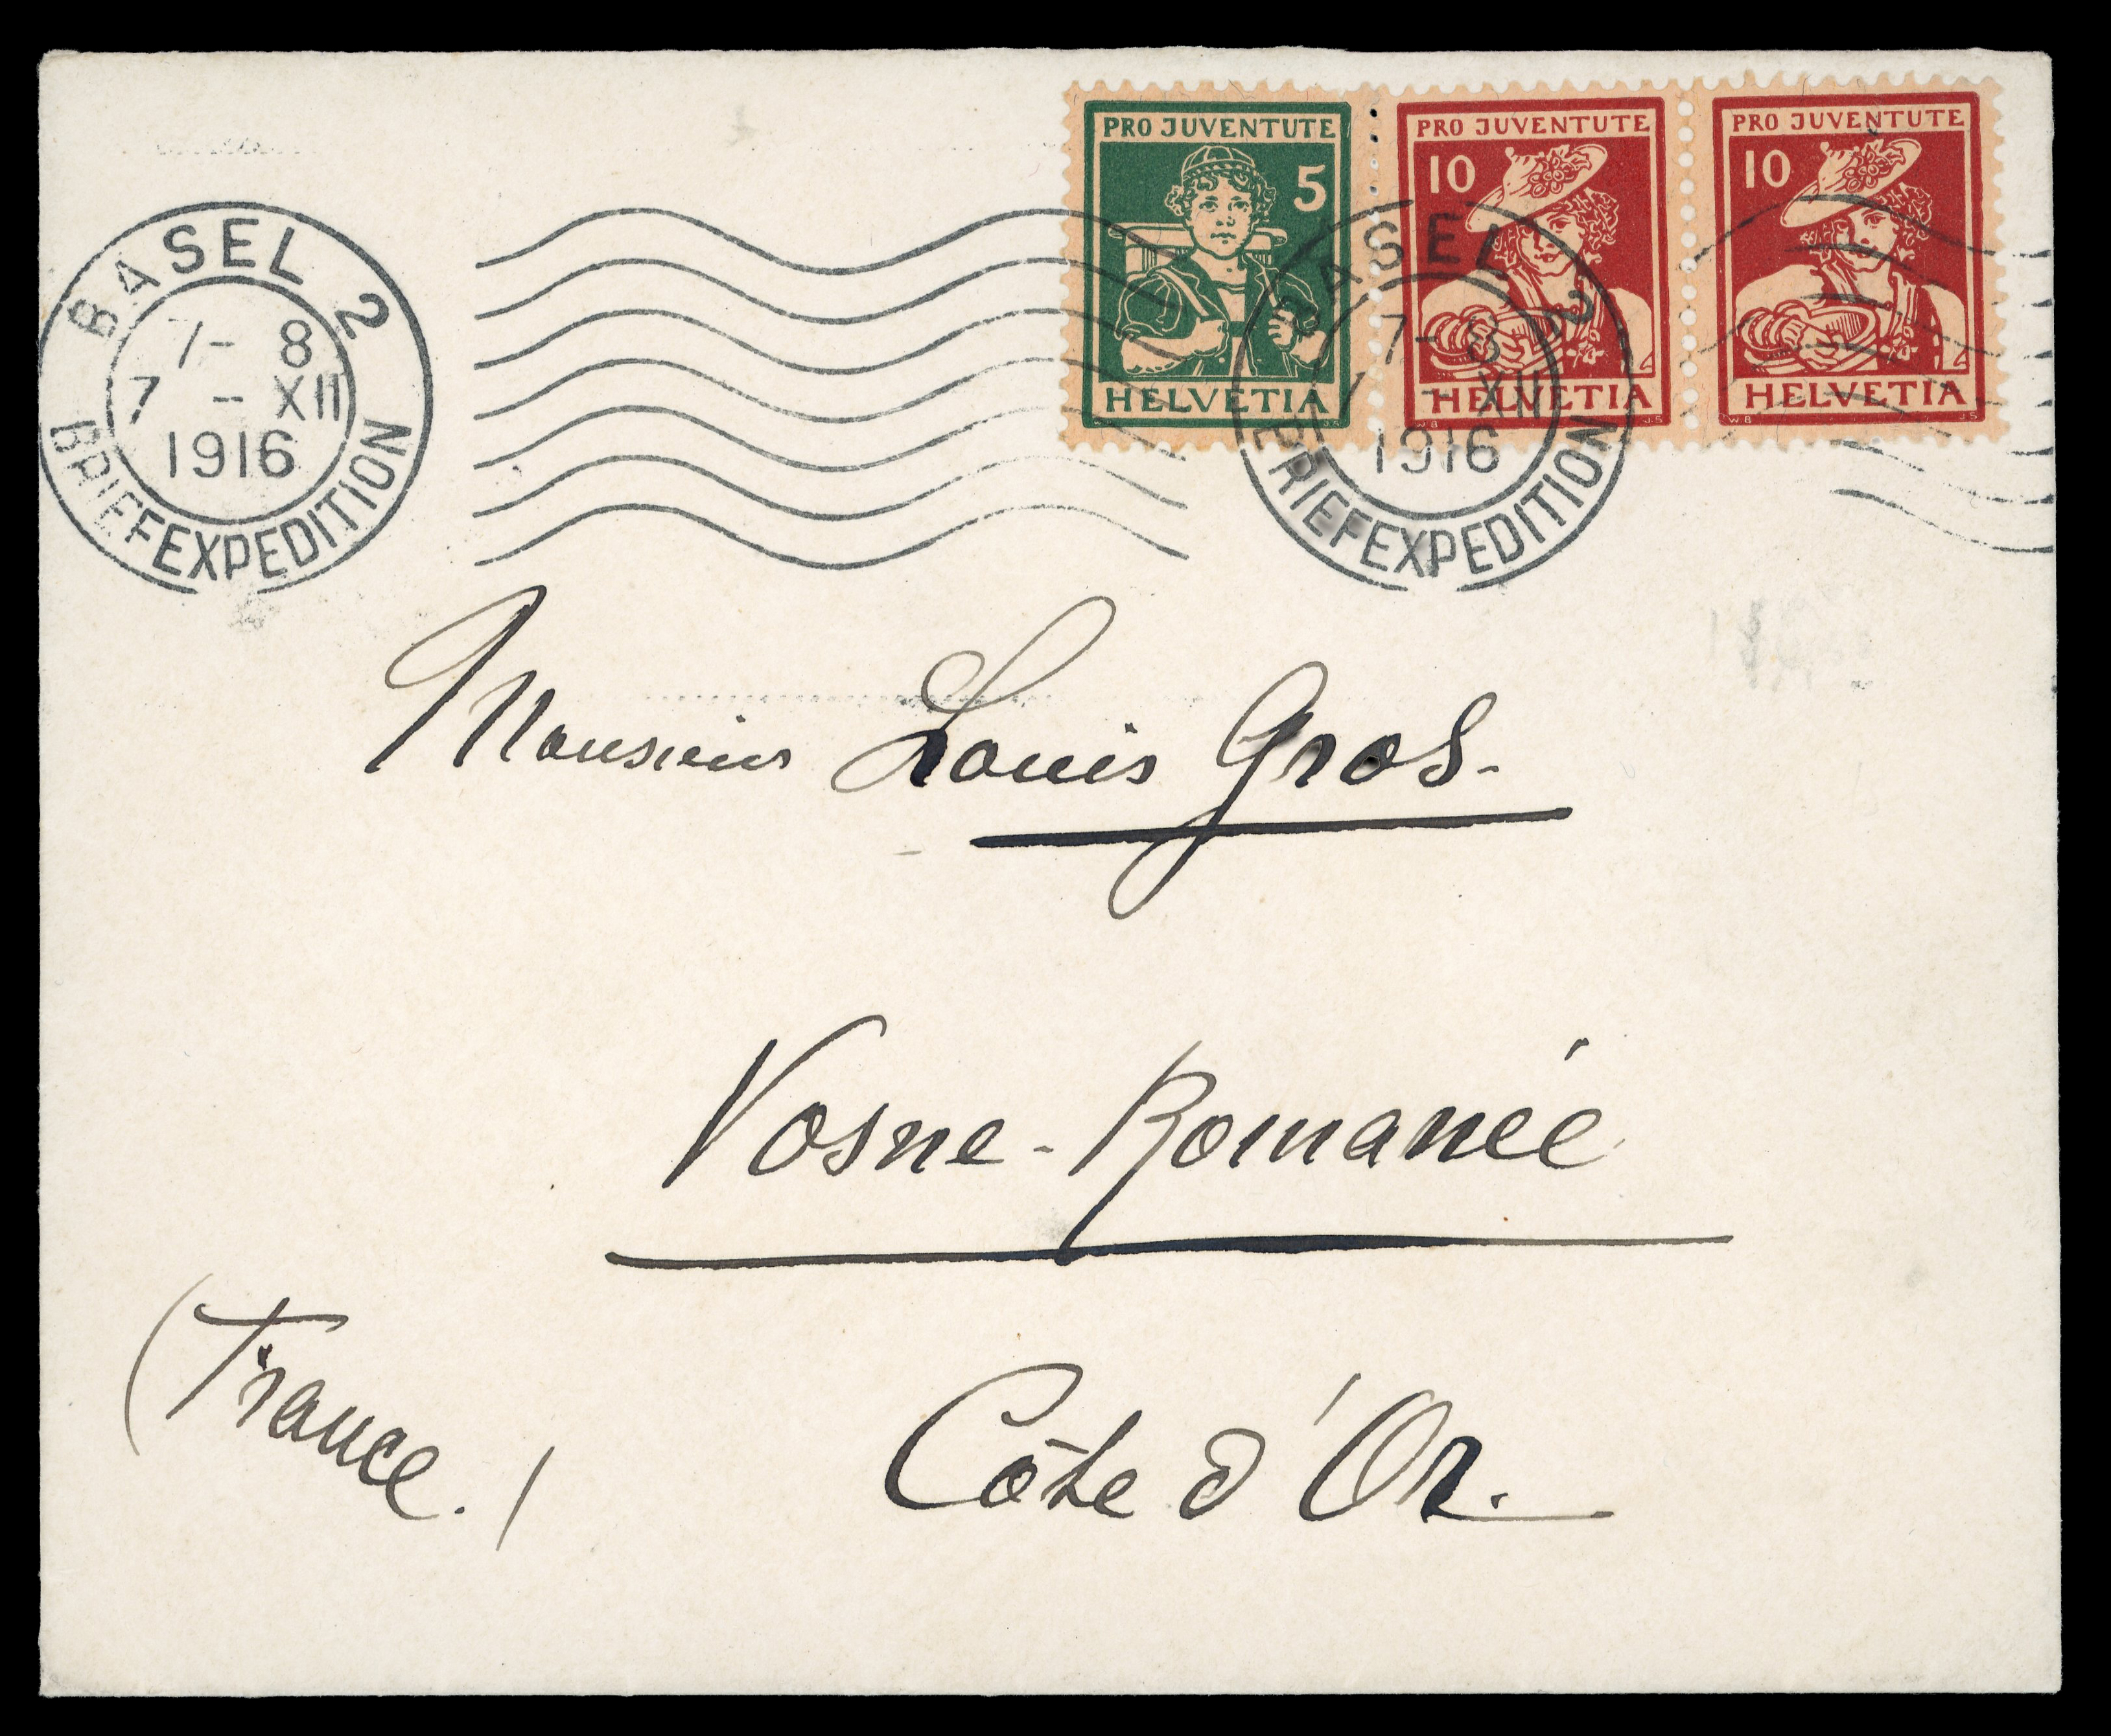 PRO JUVENTUTE
5
HELVETIA
PRO JUVENTUTE
10
HELVETIA
WB JS
PRO JUVENTUTE
10
HELVETIA
WB JS
BASEL 2
7- 8
7 - XII
1916
BRIEFEXPEDITION
BASEL 2
7- 8
7 - XII
1916
BRIEFEXPEDITION
Monsieur Louis Gros.
Vosne-Romanée
(France.)
Côte d'Or.